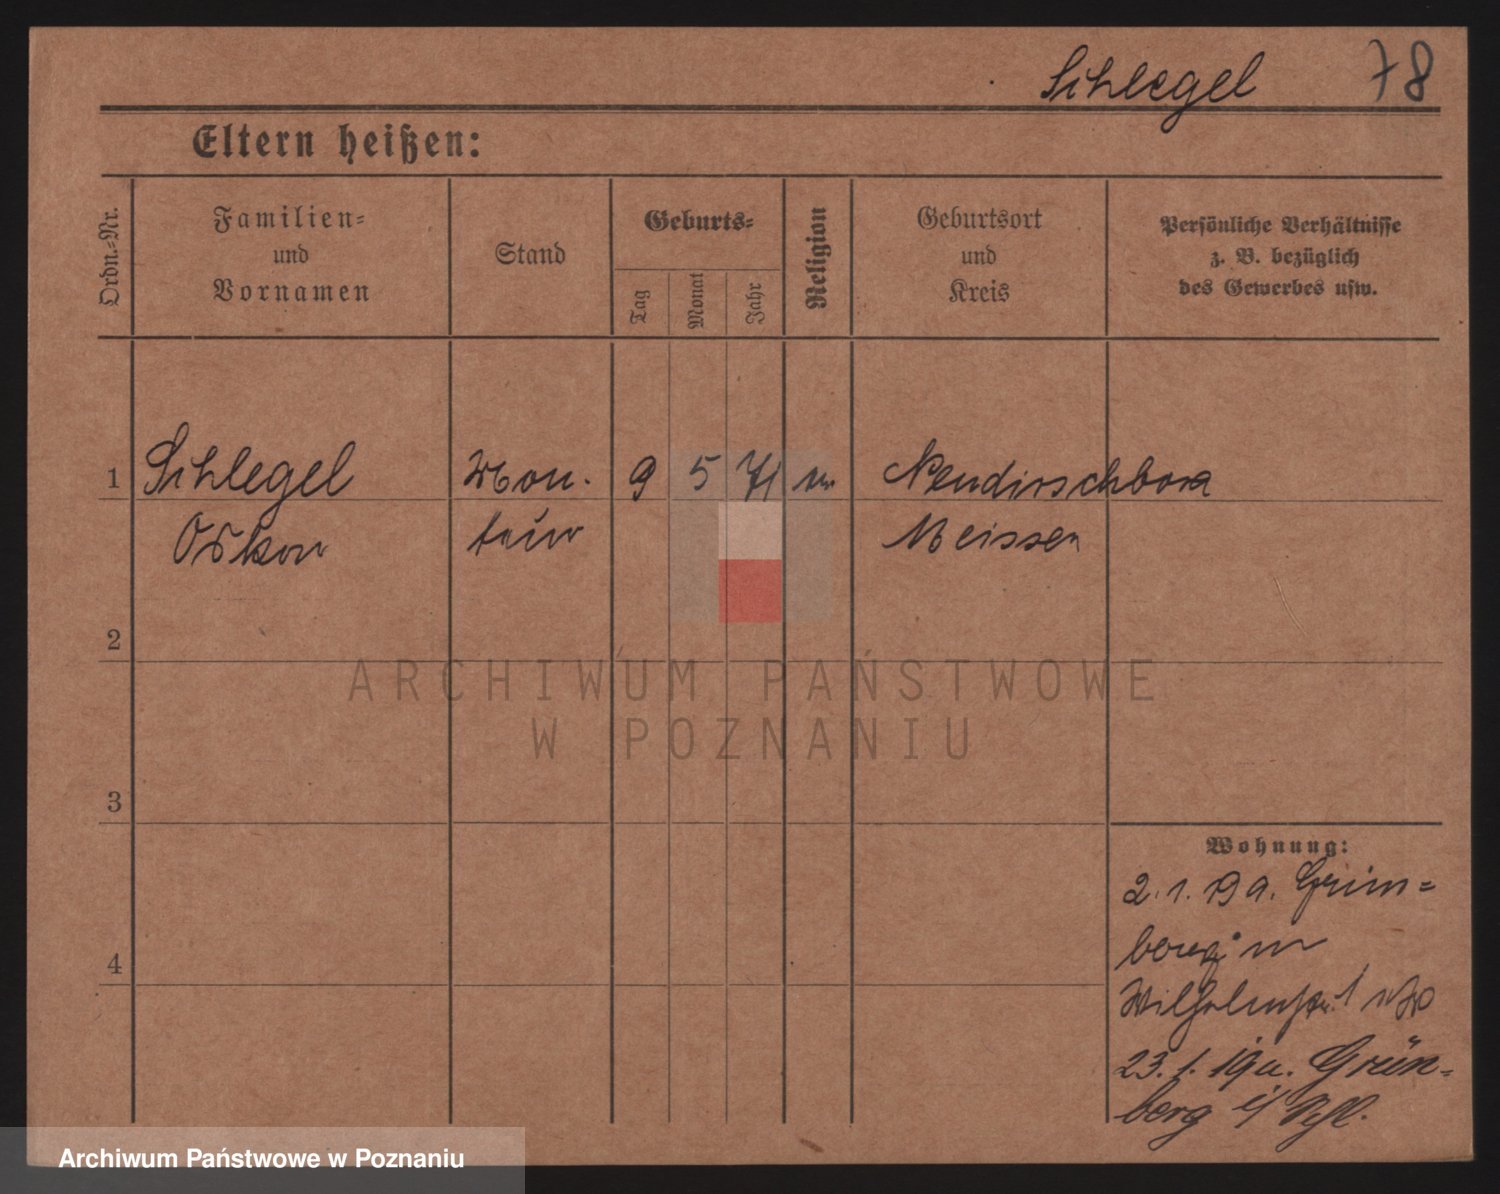 Schlegel 78
Eltern heißen:
Ordn.=Nr.
Familien=
und
Vornamen
Stand
Geburts=
Tag
Monat
Jahr
Religion
Geburtsort
und
Kreis
Persönliche Verhältnisse
z. B. bezüglich
des Gewerbes usw.
1 Schlegel Mon- 9 5 71 ev Neudirschbora
Oskar teur Meissen
2
ARCHIWUM PAŃSTWOWE
W POZNANIU
3
Wohnung:
2.1.19 a. Grün=
berg in
4
Wilhelmstr. 1
23.1.19 a. Grün=
berg i/ Schl.
Archiwum Państwowe w Poznaniu